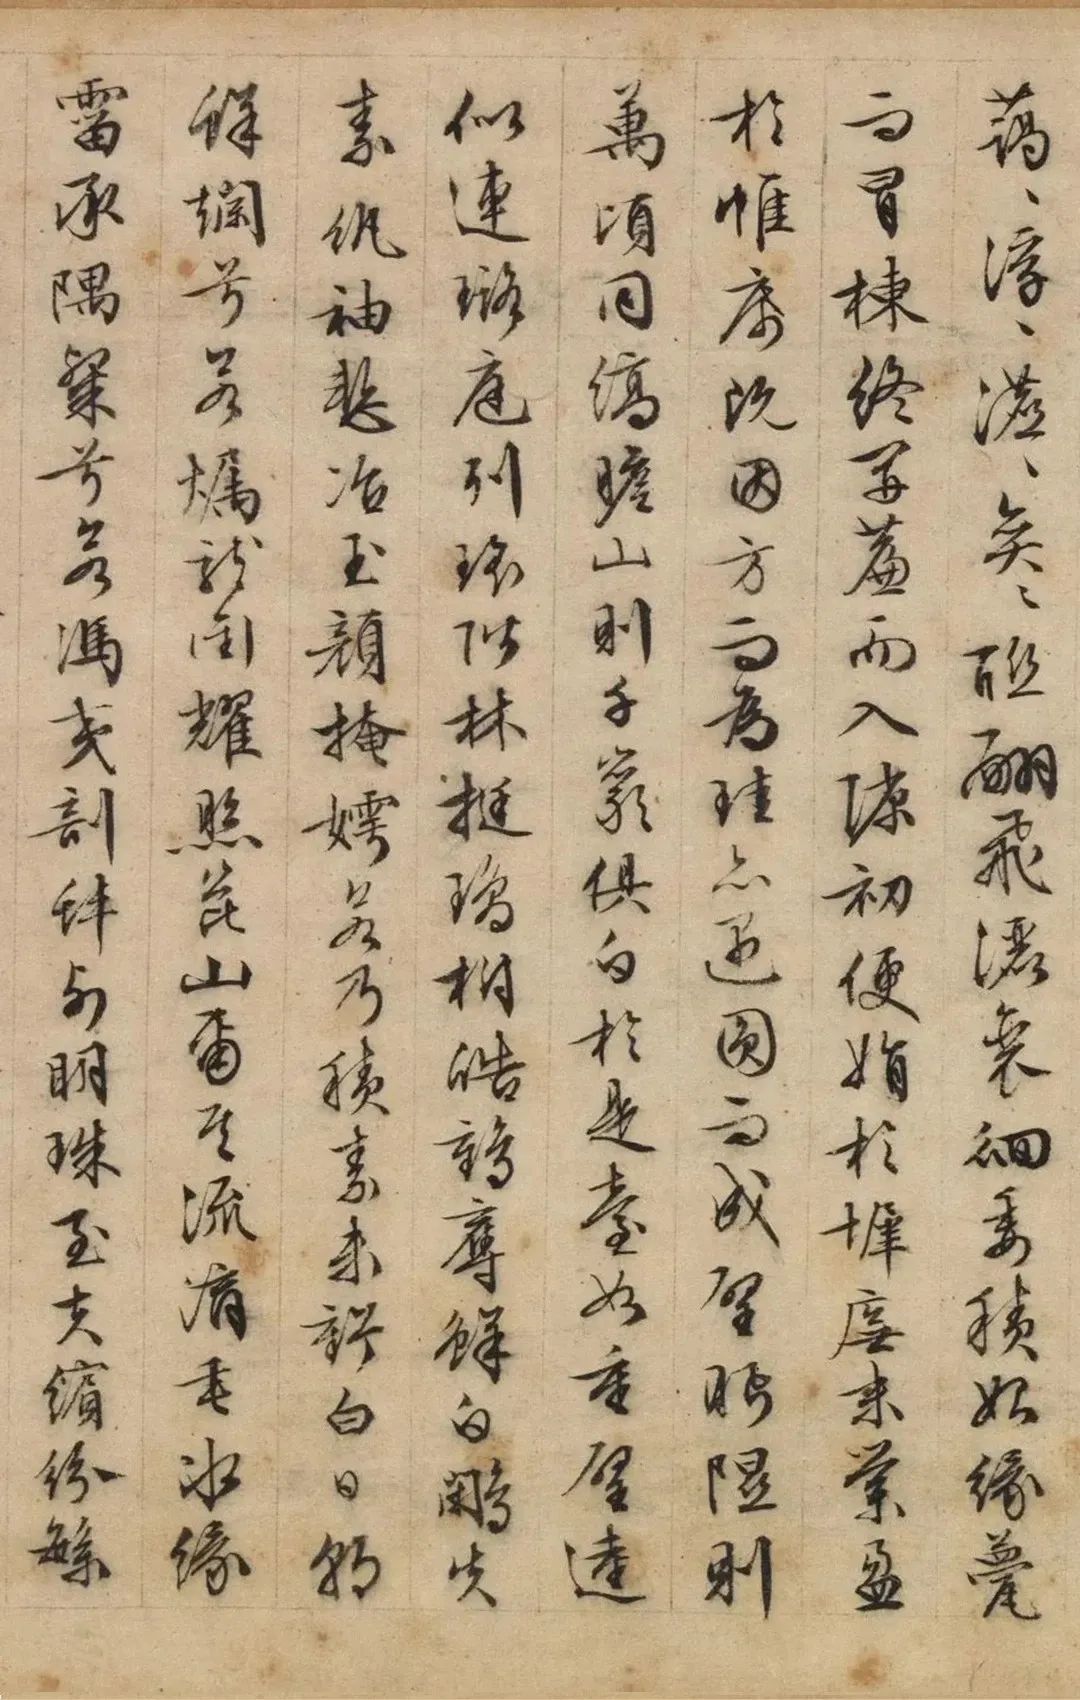 藹、浮、瀌、奕、聯翩飛灑裴徊委積始緣甍
而冒棟終開簾而入隙初便娟於墀廡末縈盈
於帷席既因方而為珪亦遇圓而成璧眄隰則
萬頃同縞瞻山則千巖俱白於是臺如重璧逵
似連璐庭列瑤階林挺瓊樹皓鶴奪鮮白鷴失
素紈袖慙冶玉顏掩嫮若乃積素未虧白日朝
鮮爛兮若燭龍銜耀照昆山爾其流滴垂冰緣
霤承隅粲兮若馮夷剖蚌列明珠至夫繽紛繁